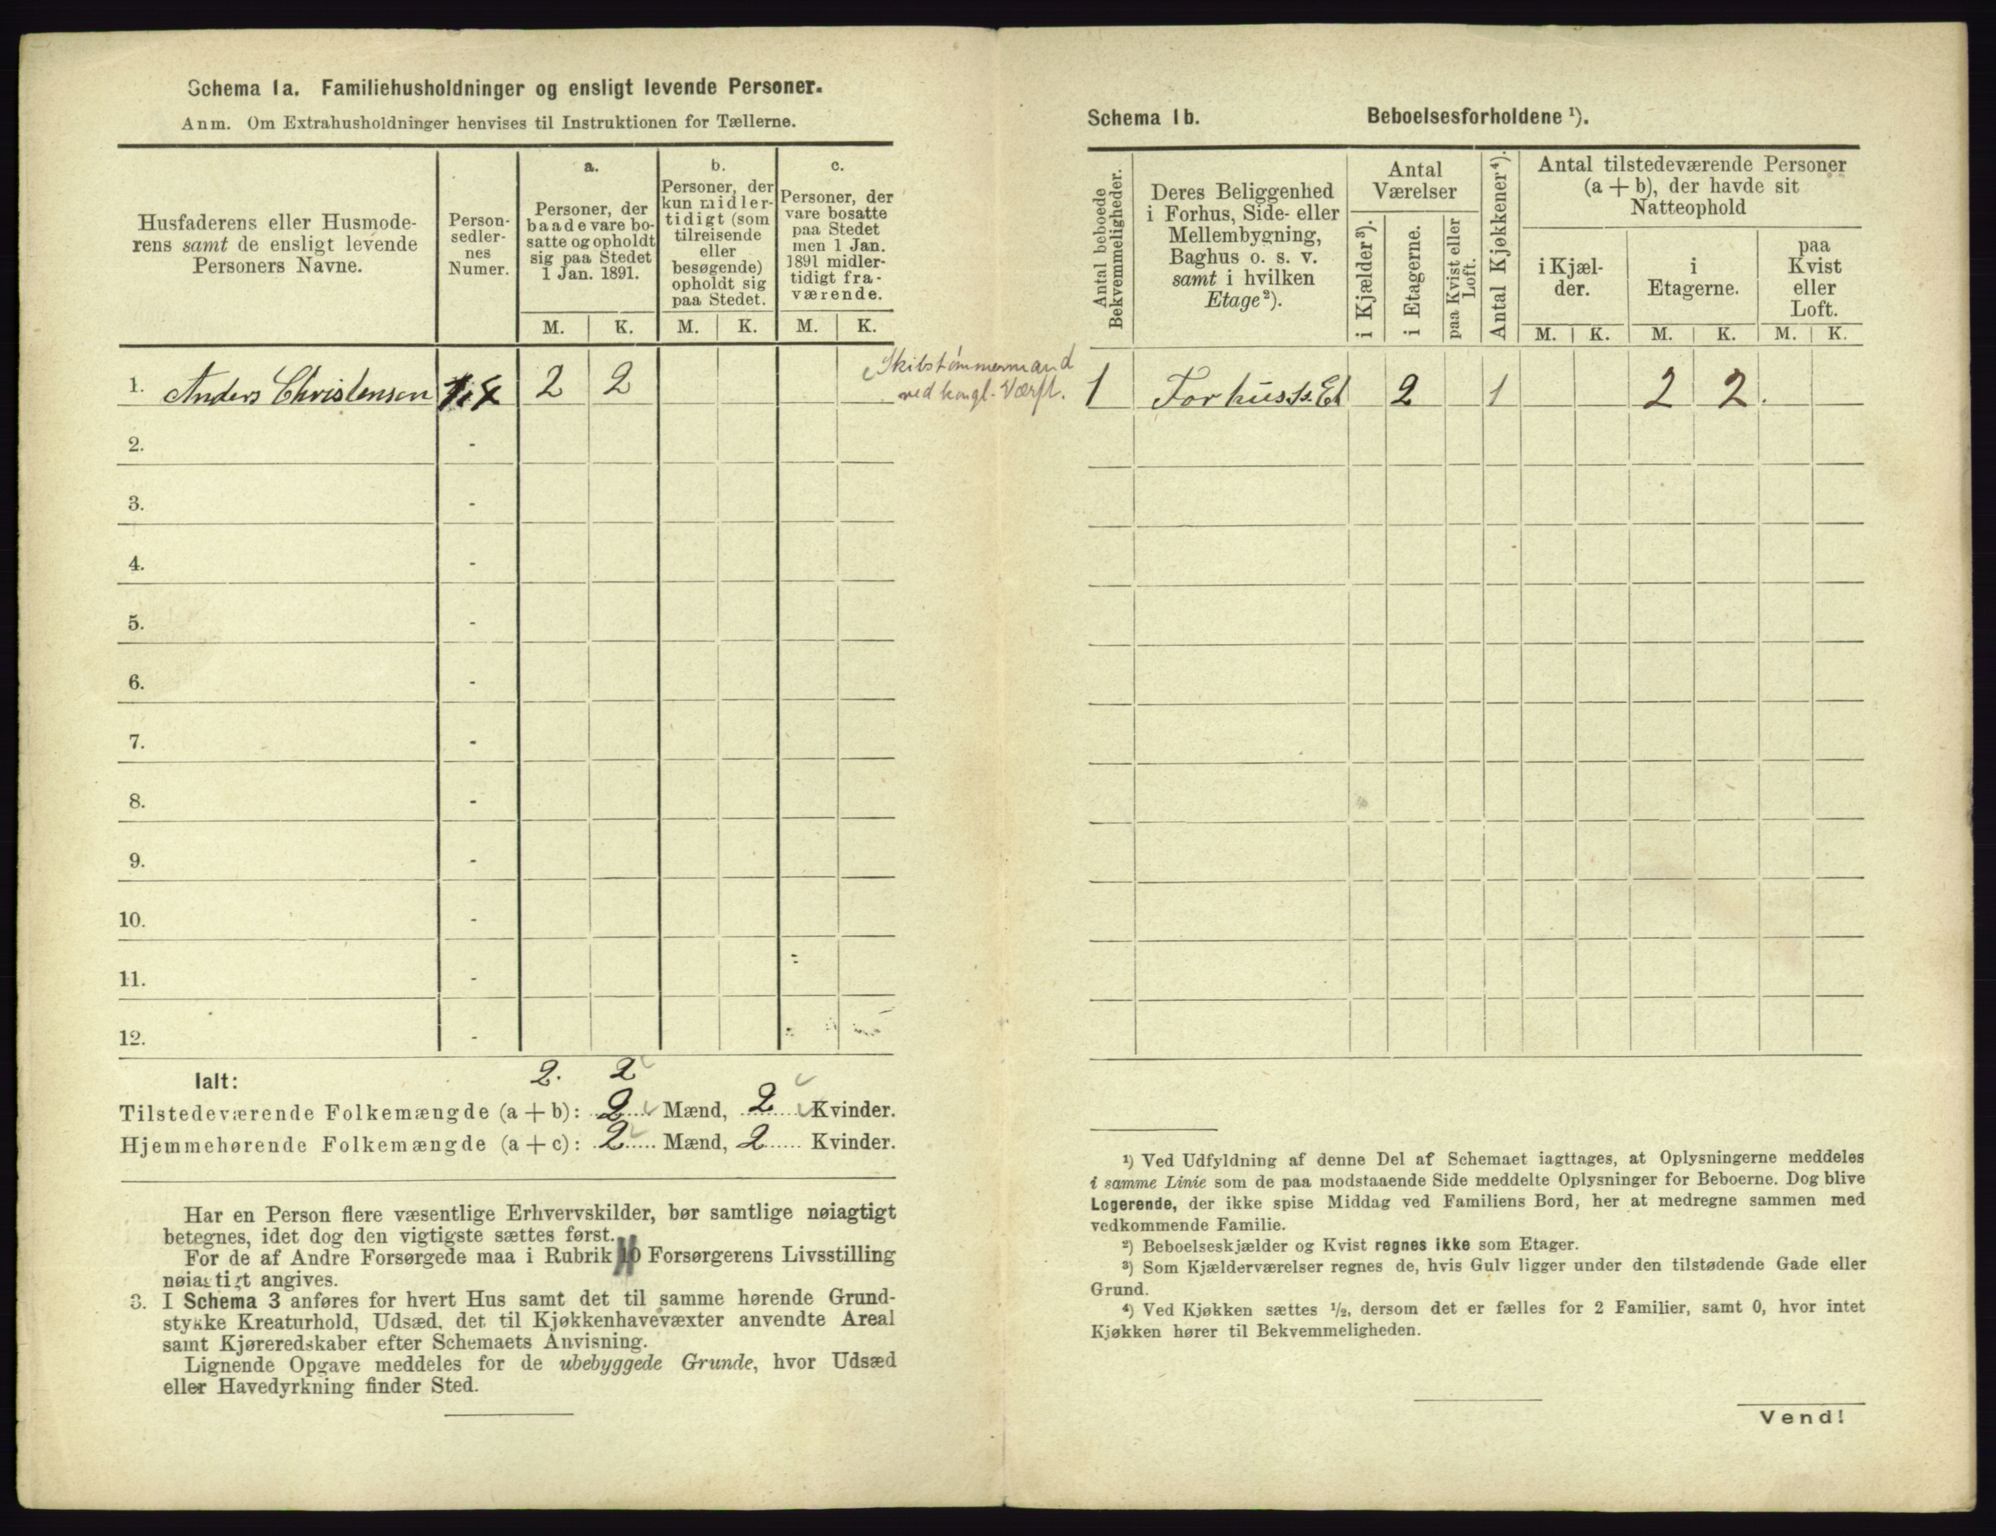 Schema 1a. Familiehusholdninger og ensligt levende Personer.
Anm. Om Extrahusholdninger henvises til Instruktionen for Tællerne.
Husfaderens eller Husmode-
rens samt de ensligt levende
Personers Navne.
Person-
sedler-
nes
Numer.
a.
Personer, der
baade vare bo-
satte og opholdt
sig paa Stedet
1 Jan. 1891.
b.
Personer, der
kun midler-
tidigt (som
tilreisende
eller
besøgende)
opholdt sig
paa Stedet.
c.
Personer, der
vare bosatte
paa Stedet
men 1 Jan.
1891 midler-
tidigt fra-
værende.
M. K. M. K. M. K.
1. Anders Christensen 1-4 2 2
Skibstømmermand
ved kongl. Værft.
2. -
3. -
4. -
5. -
6. -
7. -
8. -
9. -
10. -
11. -
12. -
Ialt: 2. 2
Tilstedeværende Folkemængde (a + b): 2 Mænd, 2 Kvinder.
Hjemmehørende Folkemængde (a + c): 2 Mænd, 2 Kvinder.
Har en Person flere væsentlige Erhvervskilder, bør samtlige nøiagtigt
betegnes, idet dog den vigtigste sættes først.
For de af Andre Forsørgede maa i Rubrik Forsørgerens Livsstilling
nøiagtigt angives.
3. I Schema 3 anføres for hvert Hus samt det til samme hørende Grund-
stykke Kreaturhold, Udsæd, det til Kjøkkenhavevæxter anvendte Areal
samt Kjøreredskaber efter Schemaets Anvisning.
Lignende Opgave meddeles for de ubebyggede Grunde, hvor Udsæd
eller Havedyrkning finder Sted.
Schema 1b. Beboelsesforholdene ¹).
Antal beboede
Bekvemmeligheder.
Deres Beliggenhed
i Forhus, Side- eller
Mellembygning,
Baghus o. s. v.
samt i hvilken
Etage²).
Antal
Værelser
i Kjælder³).
i Etagerne.
paa Kvist eller
Loft.
Antal Kjøkkener⁴).
Antal tilstedeværende Personer
(a + b), der havde sit
Natteophold
i Kjæl-
der.
i
Etagerne.
paa
Kvist
eller
Loft.
M. K. M. K. M. K.
1 Forhus 1s. Et 2 1 2 2
¹) Ved Udfyldning af denne Del af Schemaet iagttages, at Oplysningerne meddeles
i samme Linie som de paa modstaaende Side meddelte Oplysninger for Beboerne. Dog blive
Logerende, der ikke spise Middag ved Familiens Bord, her at medregne sammen med
vedkommende Familie.
²) Beboelseskjælder og Kvist regnes ikke som Etager.
³) Som Kjælderværelser regnes de, hvis Gulv ligger under den tilstødende Gade eller
Grund.
⁴) Ved Kjøkken sættes ½, dersom det er fælles for 2 Familier, samt 0, hvor intet
Kjøkken hører til Bekvemmeligheden.
Vend!